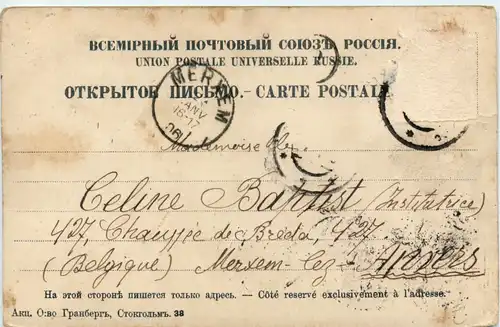 ВСЕМІРНЫЙ ПОЧТОВЫЙ СОЮЗЪ РОССІЯ.
UNION POSTALE UNIVERSELLE RUSSIE.
MERXEM
ОТКРЫТОЕ ПИСЬМО.- CARTE POSTALE
JANV
16-17
Mademoiselle
Celine Baptist (Institutrice)
427, Chaussée de Bréda, 427
(Belgique) Merxem-lez-Anvers
На этой сторонѣ пишется только адресъ. — Côté reservé exclusivement à l'adresse.
Акц. О:во Гранбергъ, Стокгольмъ. 38